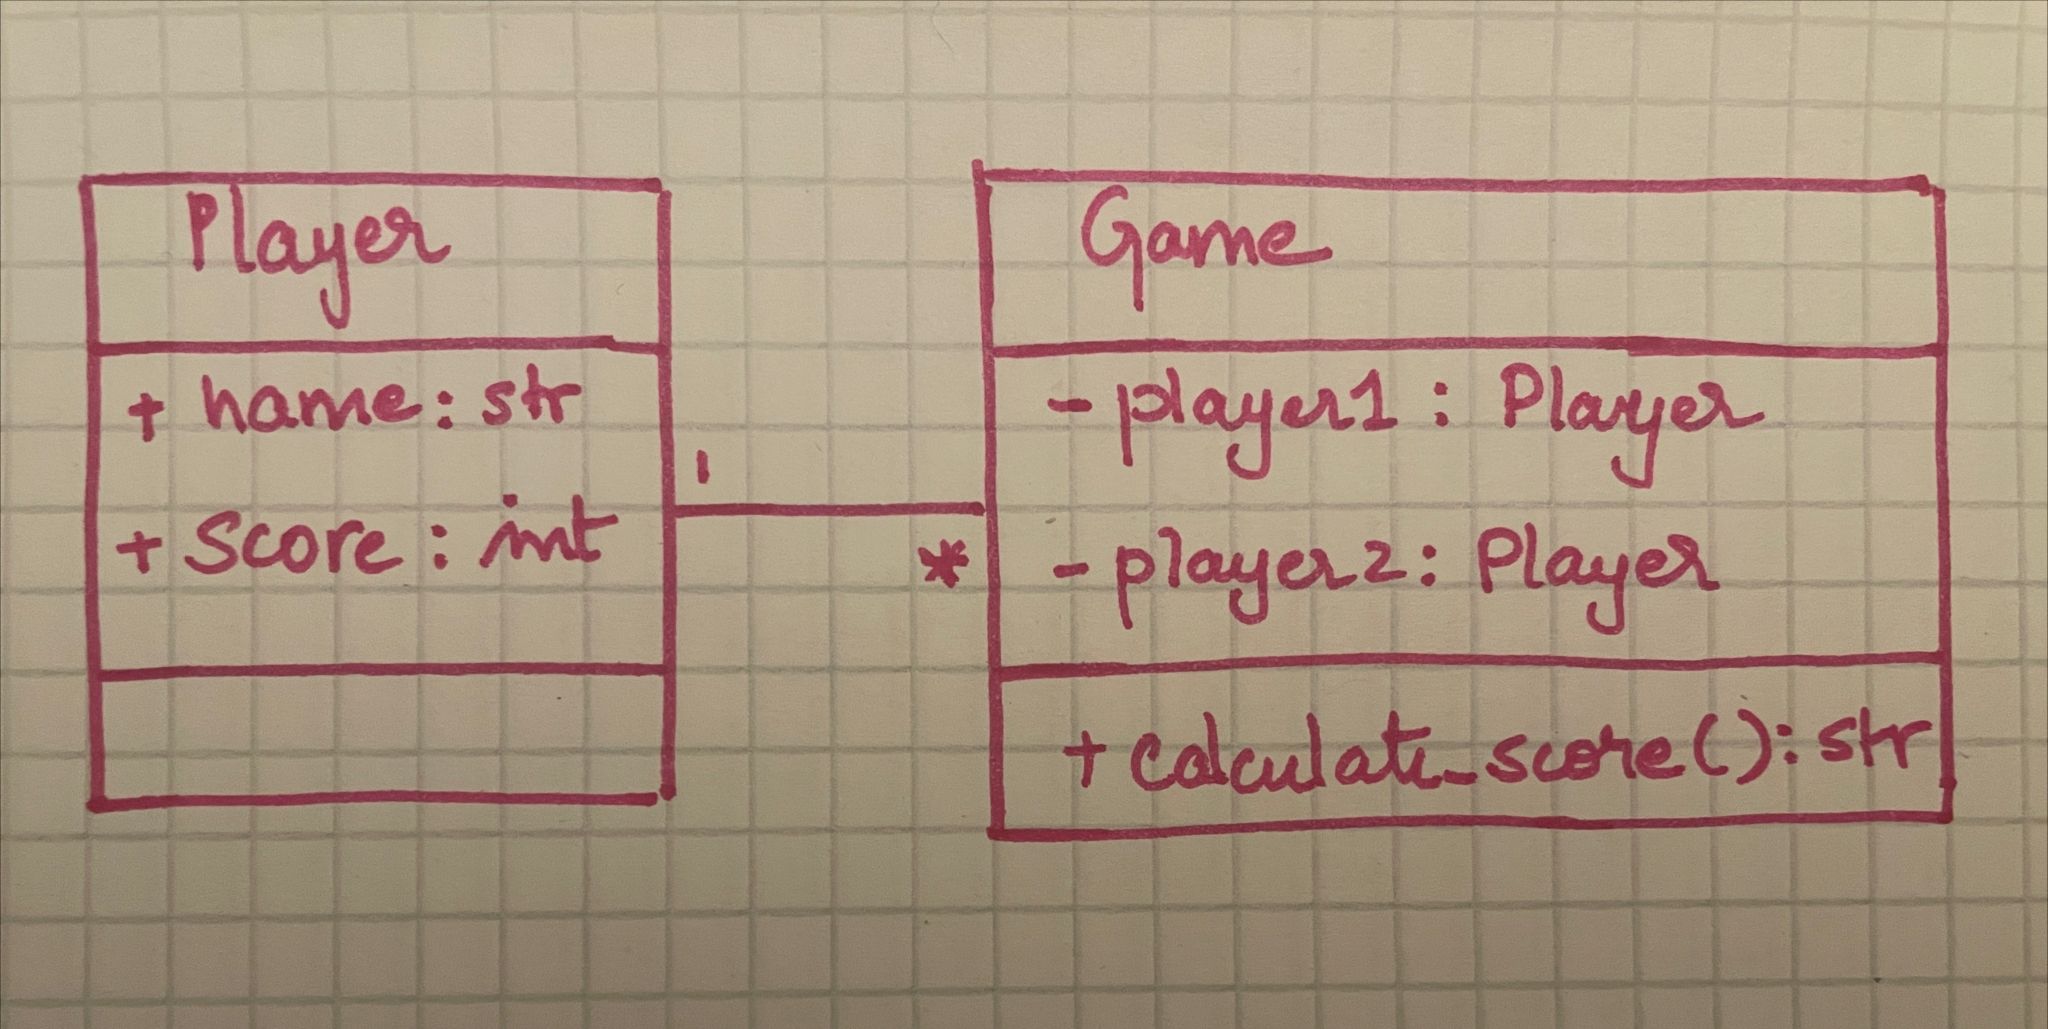 Player
+ name: str
+ score: int
1
*
Game
- player1: Player
- player2: Player
+ calculate_score(): str